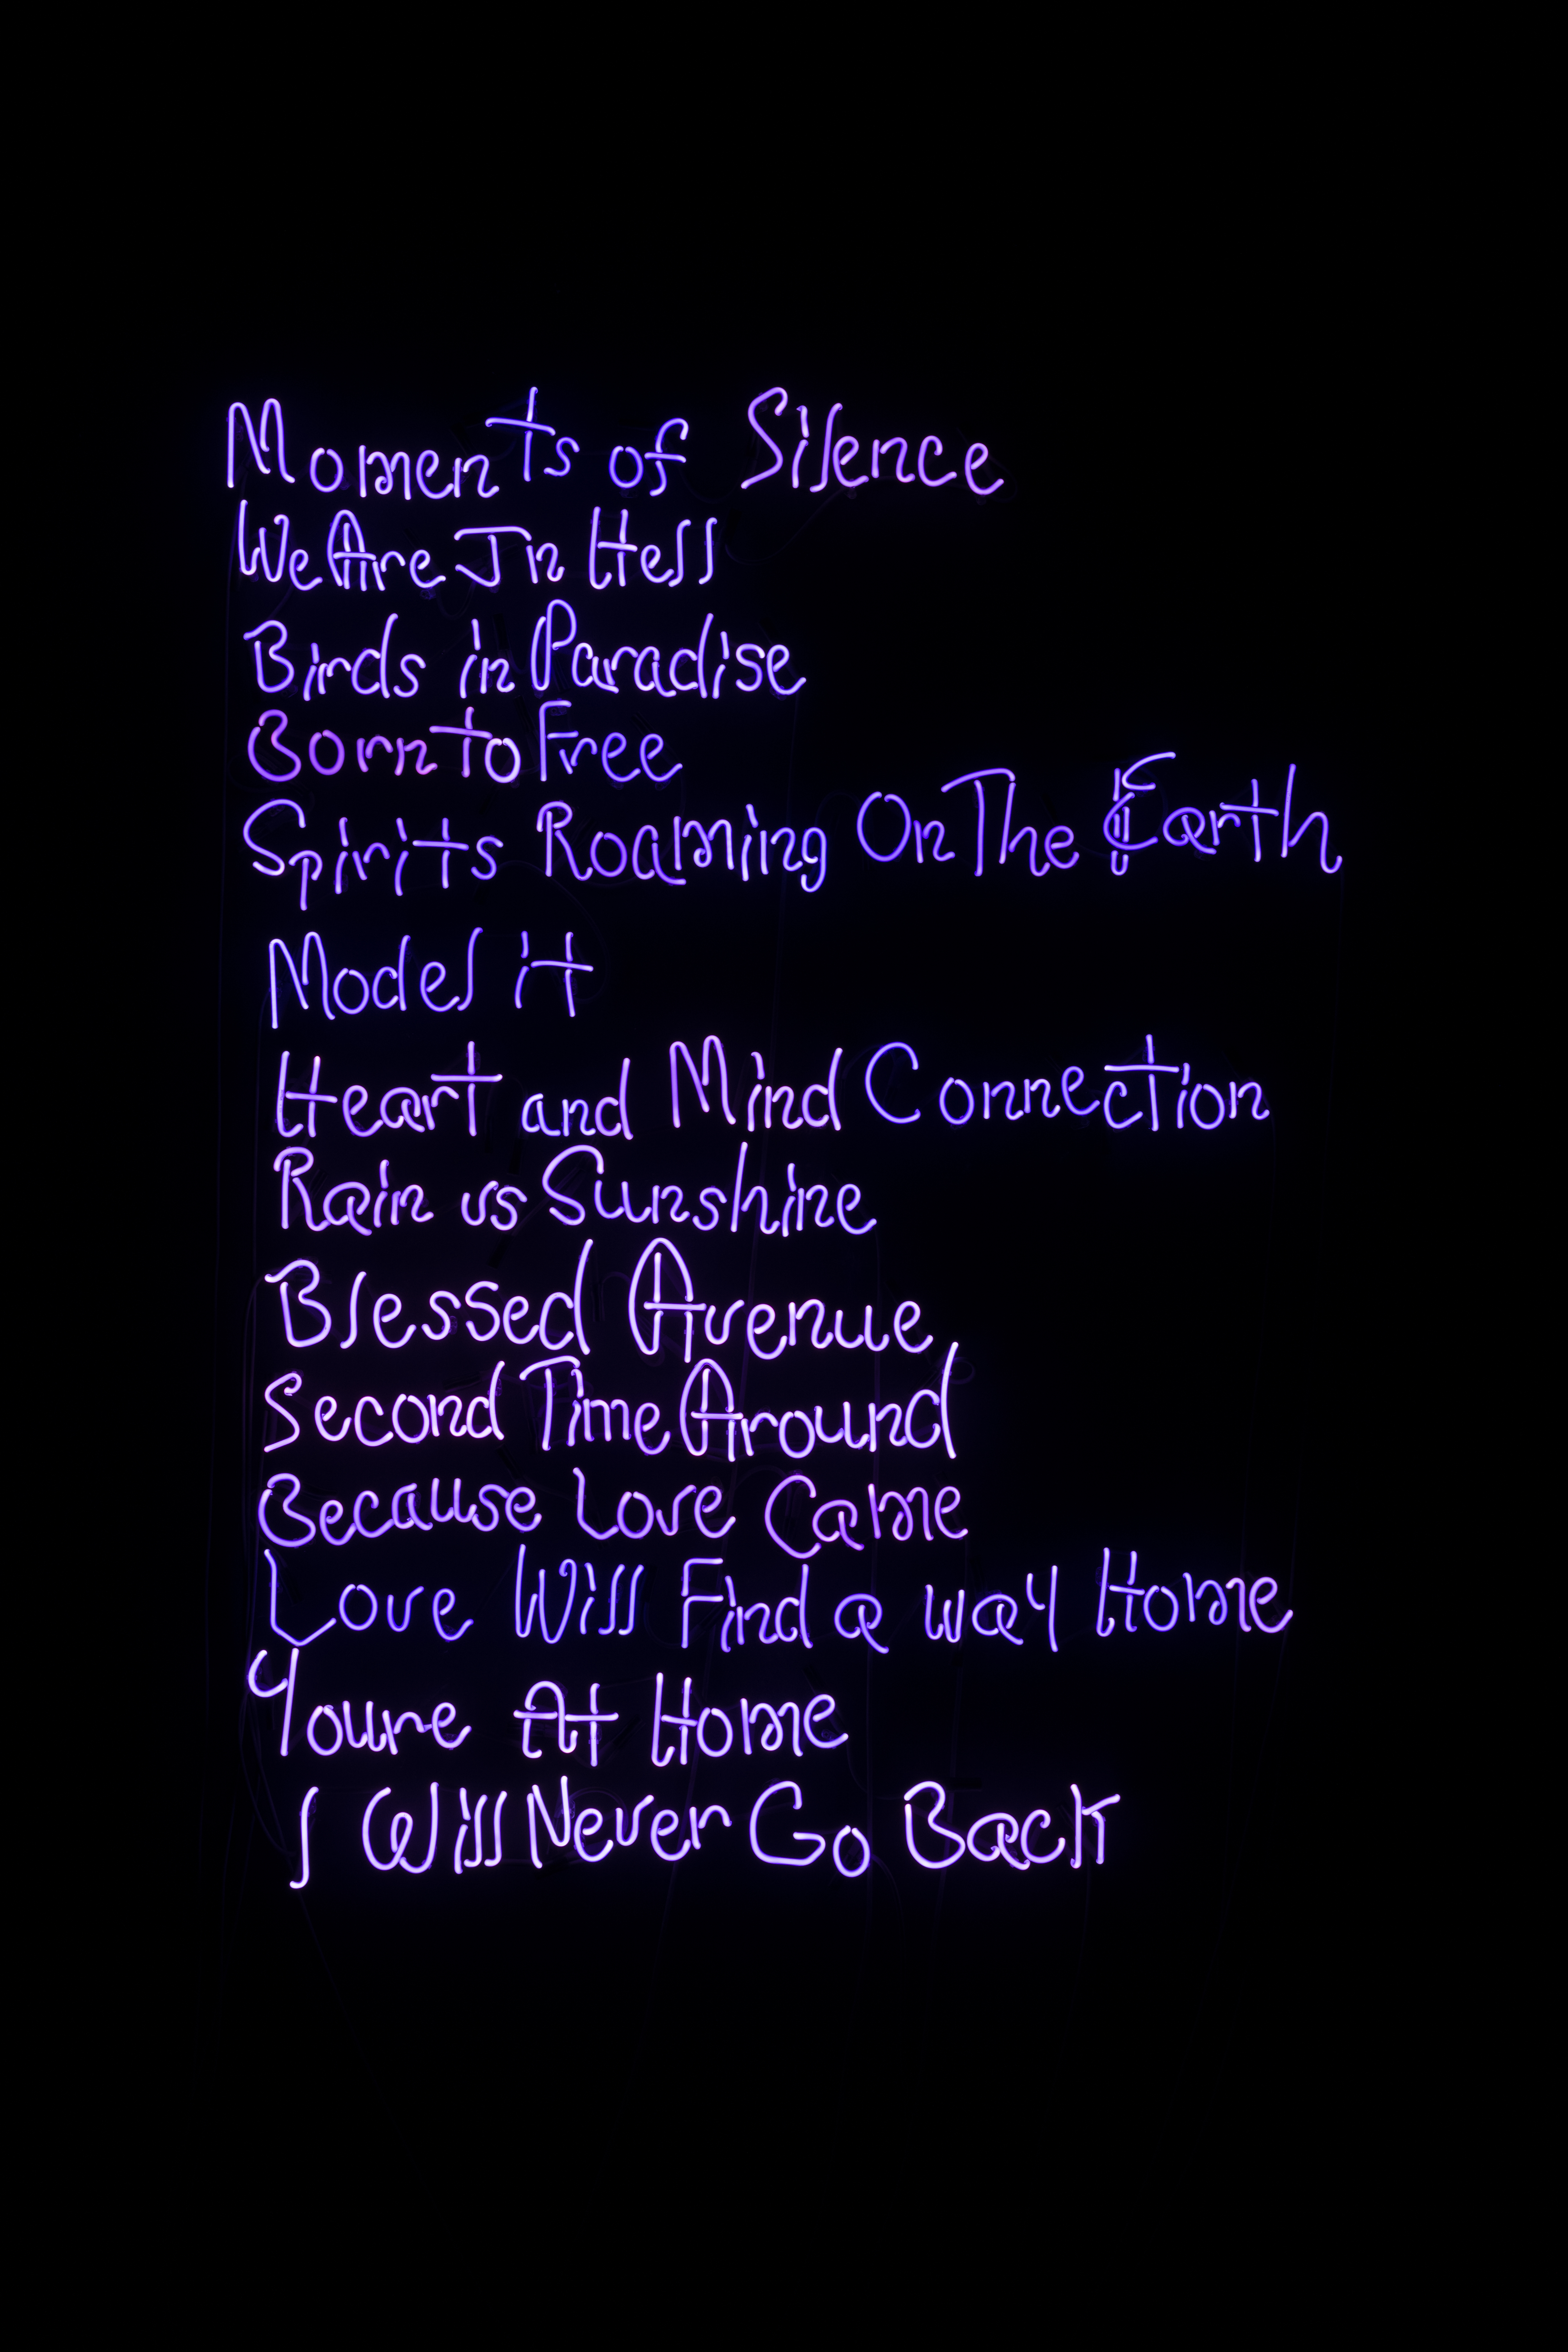 Moments of Silence
We Are In Hell
Birds in Paradise
Born to Free
Spirits Roaming On The Earth
Model it
Heart and Mind Connection
Rain vs Sunshine
Blessed Avenue
Second Time Around
Because Love Came
Love Will Find a way Home
Youre At Home
I Will Never Go Back